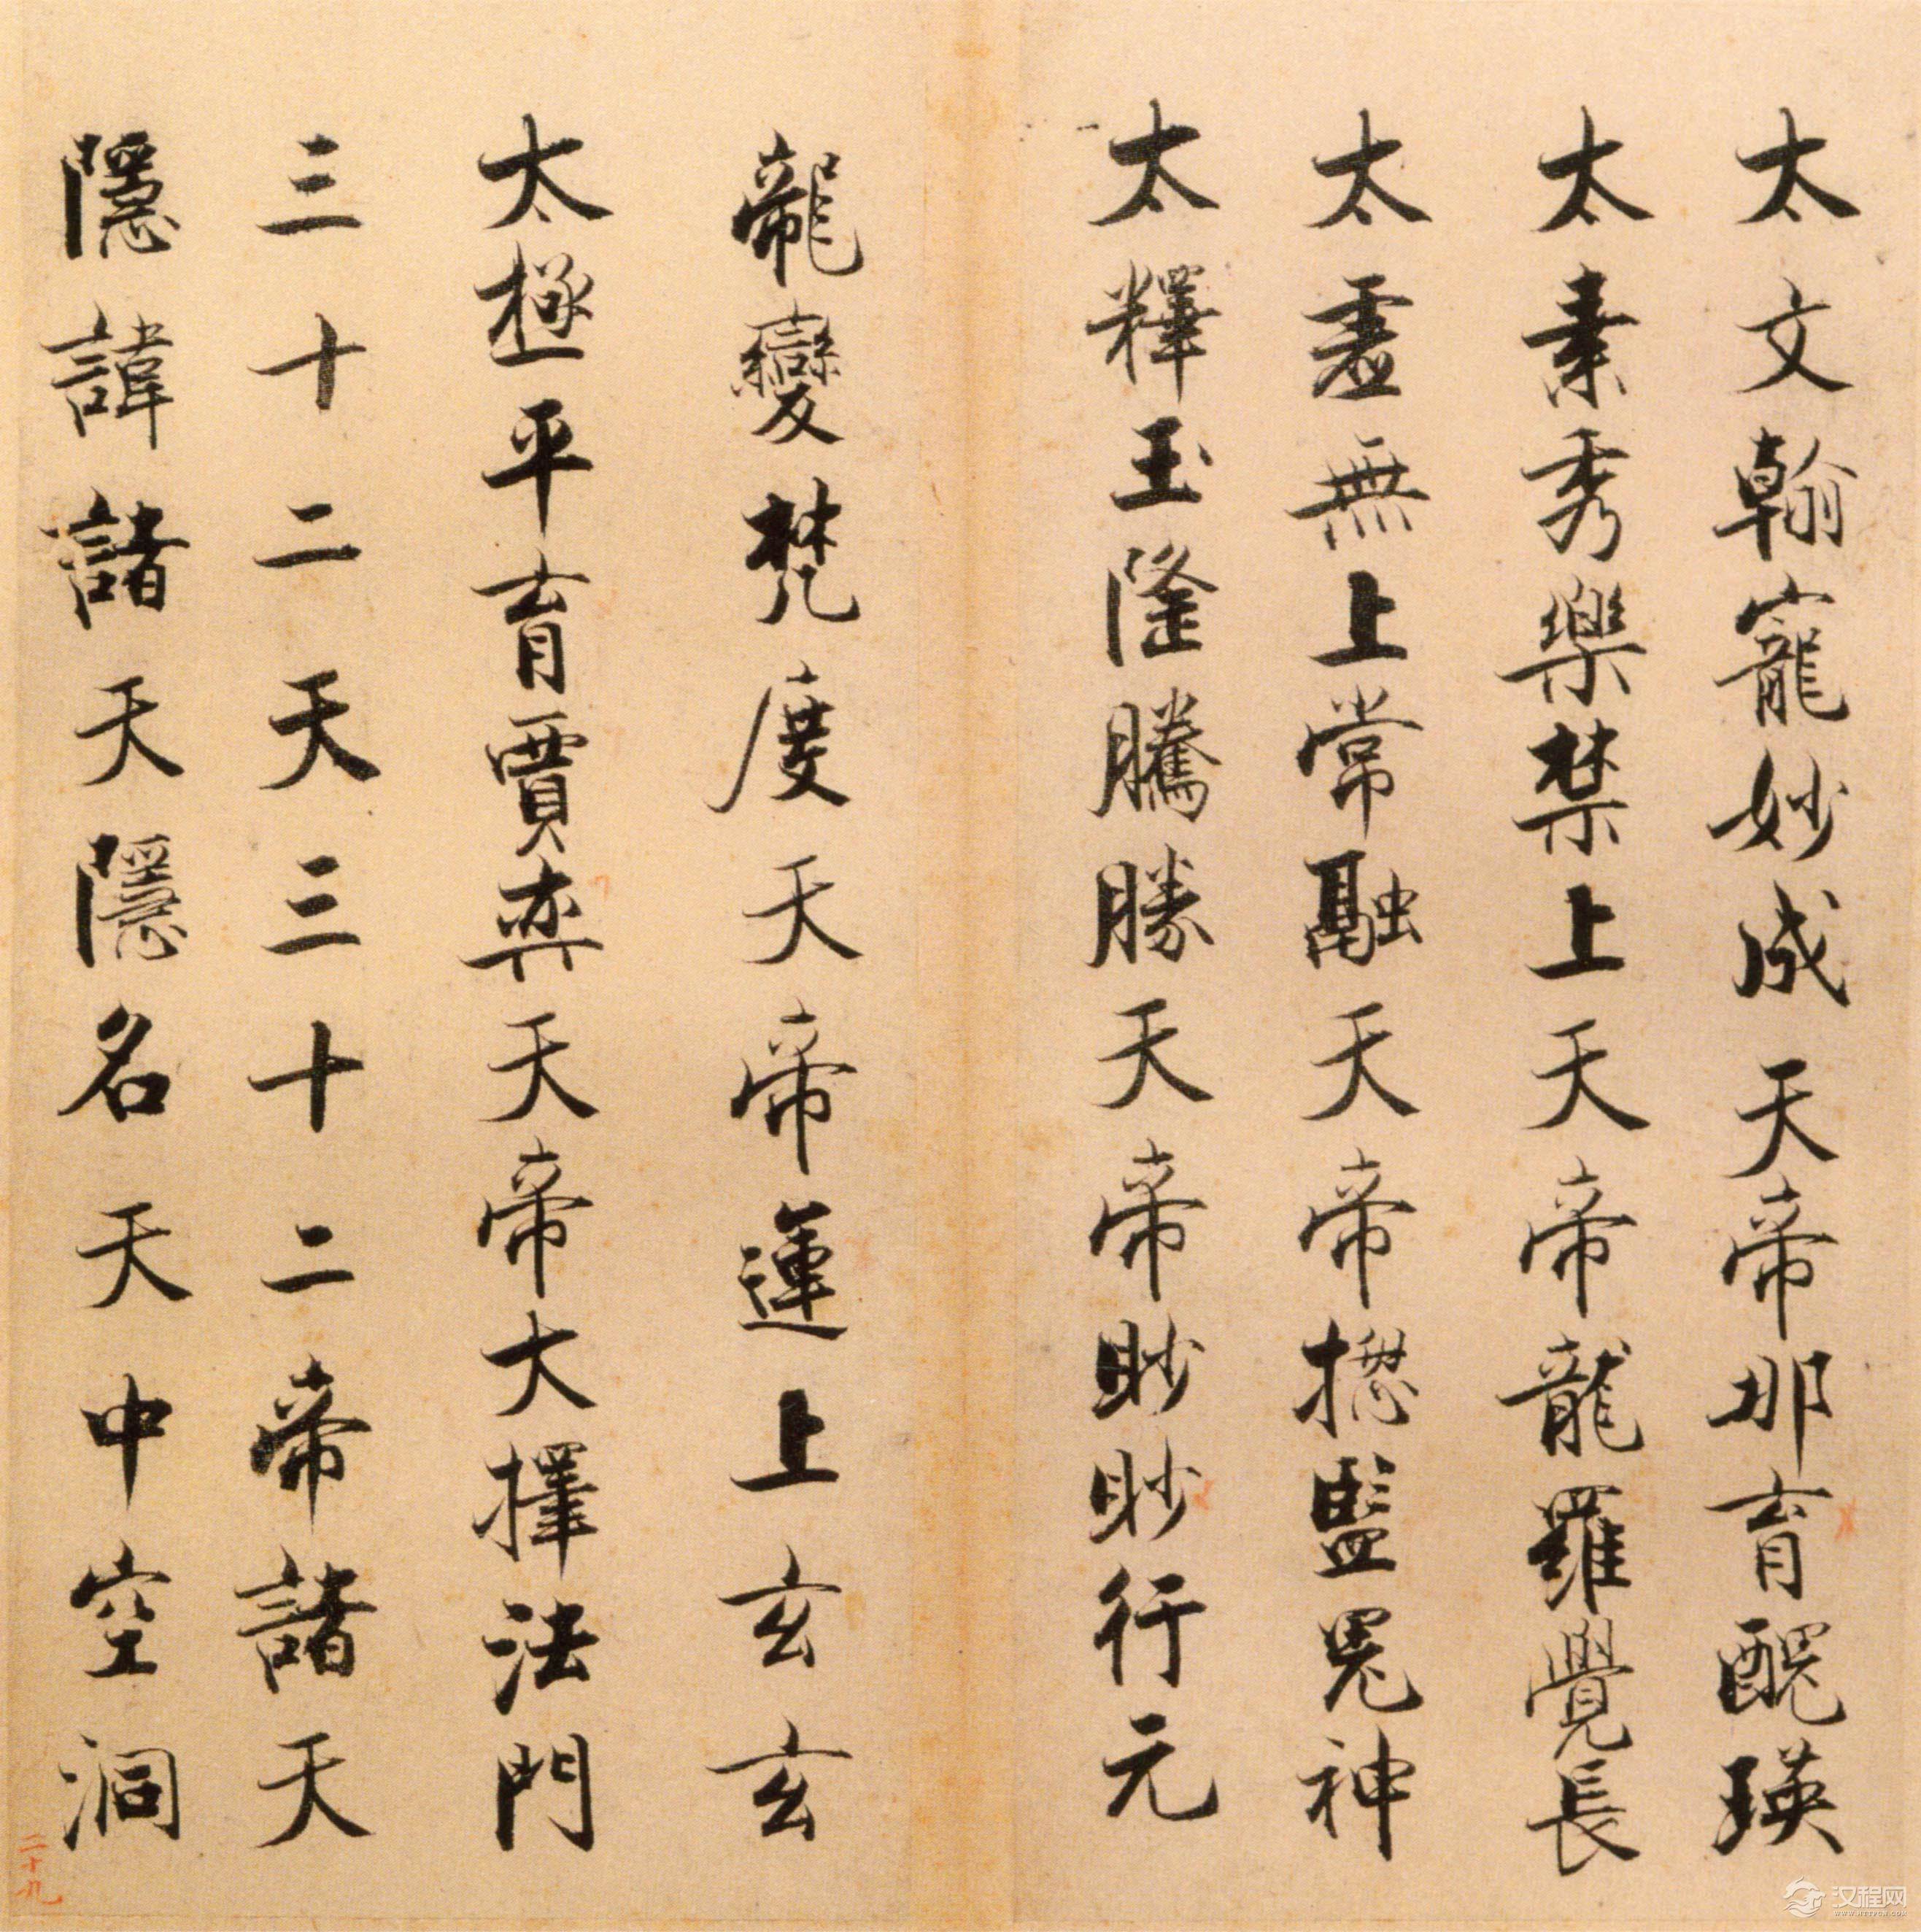 太文翰寵妙成天帝那育醜瑛
太素秀樂禁上天帝龍羅覺長
太虛無上常融天帝摠監鬼神
太釋玉隆騰勝天帝眇眇行元
龍變梵度天帝運上玄玄
太極平育賈弈天帝大擇法門
三十二天三十二帝諸天
隱諱諸天隱名天中空洞
二十九
汉程网
WWW.HTTPCN.COM